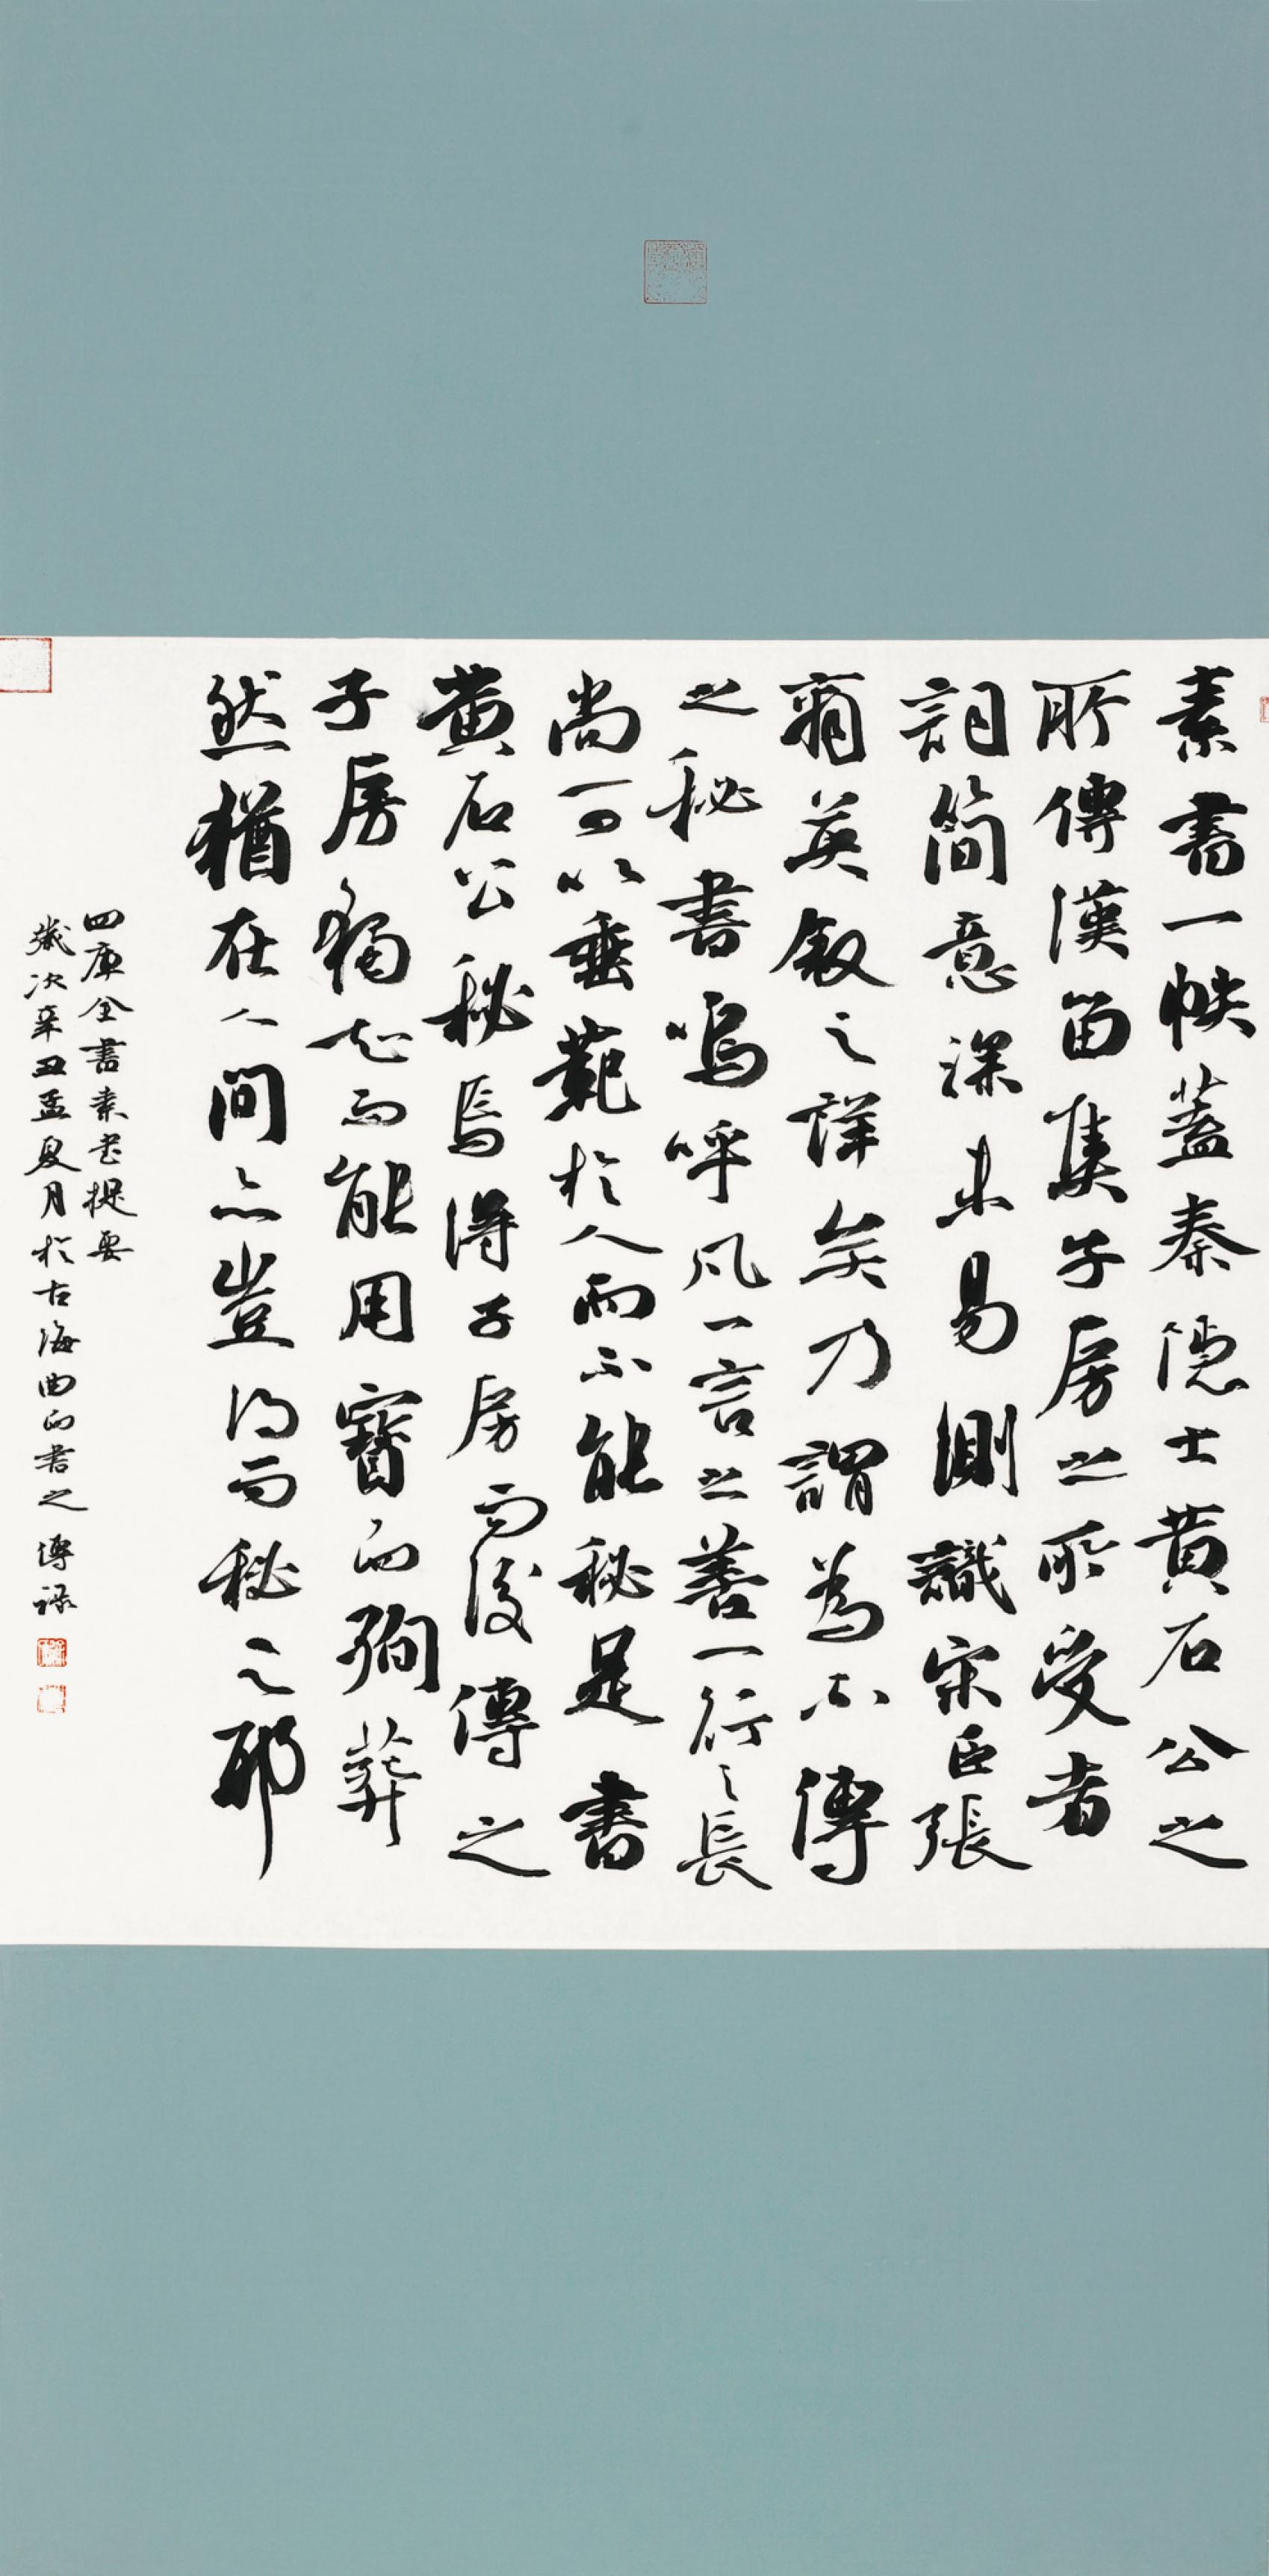 素書一帙蓋秦隱士黄石公之
所傳漢留集子房之所受者
詞簡意深未易測識宋臣張
商英叙之詳矣乃謂為不傳
之秘書嗚呼凡一言之善一行之長
尚可以垂範於人而不能秘是書
黄石公秘焉得子房而後傳之
子房獨知而能用寶而殉葬
然猶在人間亦豈得而秘之耶
四庫全書素书提要
歲次辛丑孟夏月於古海曲而書之 傳祿